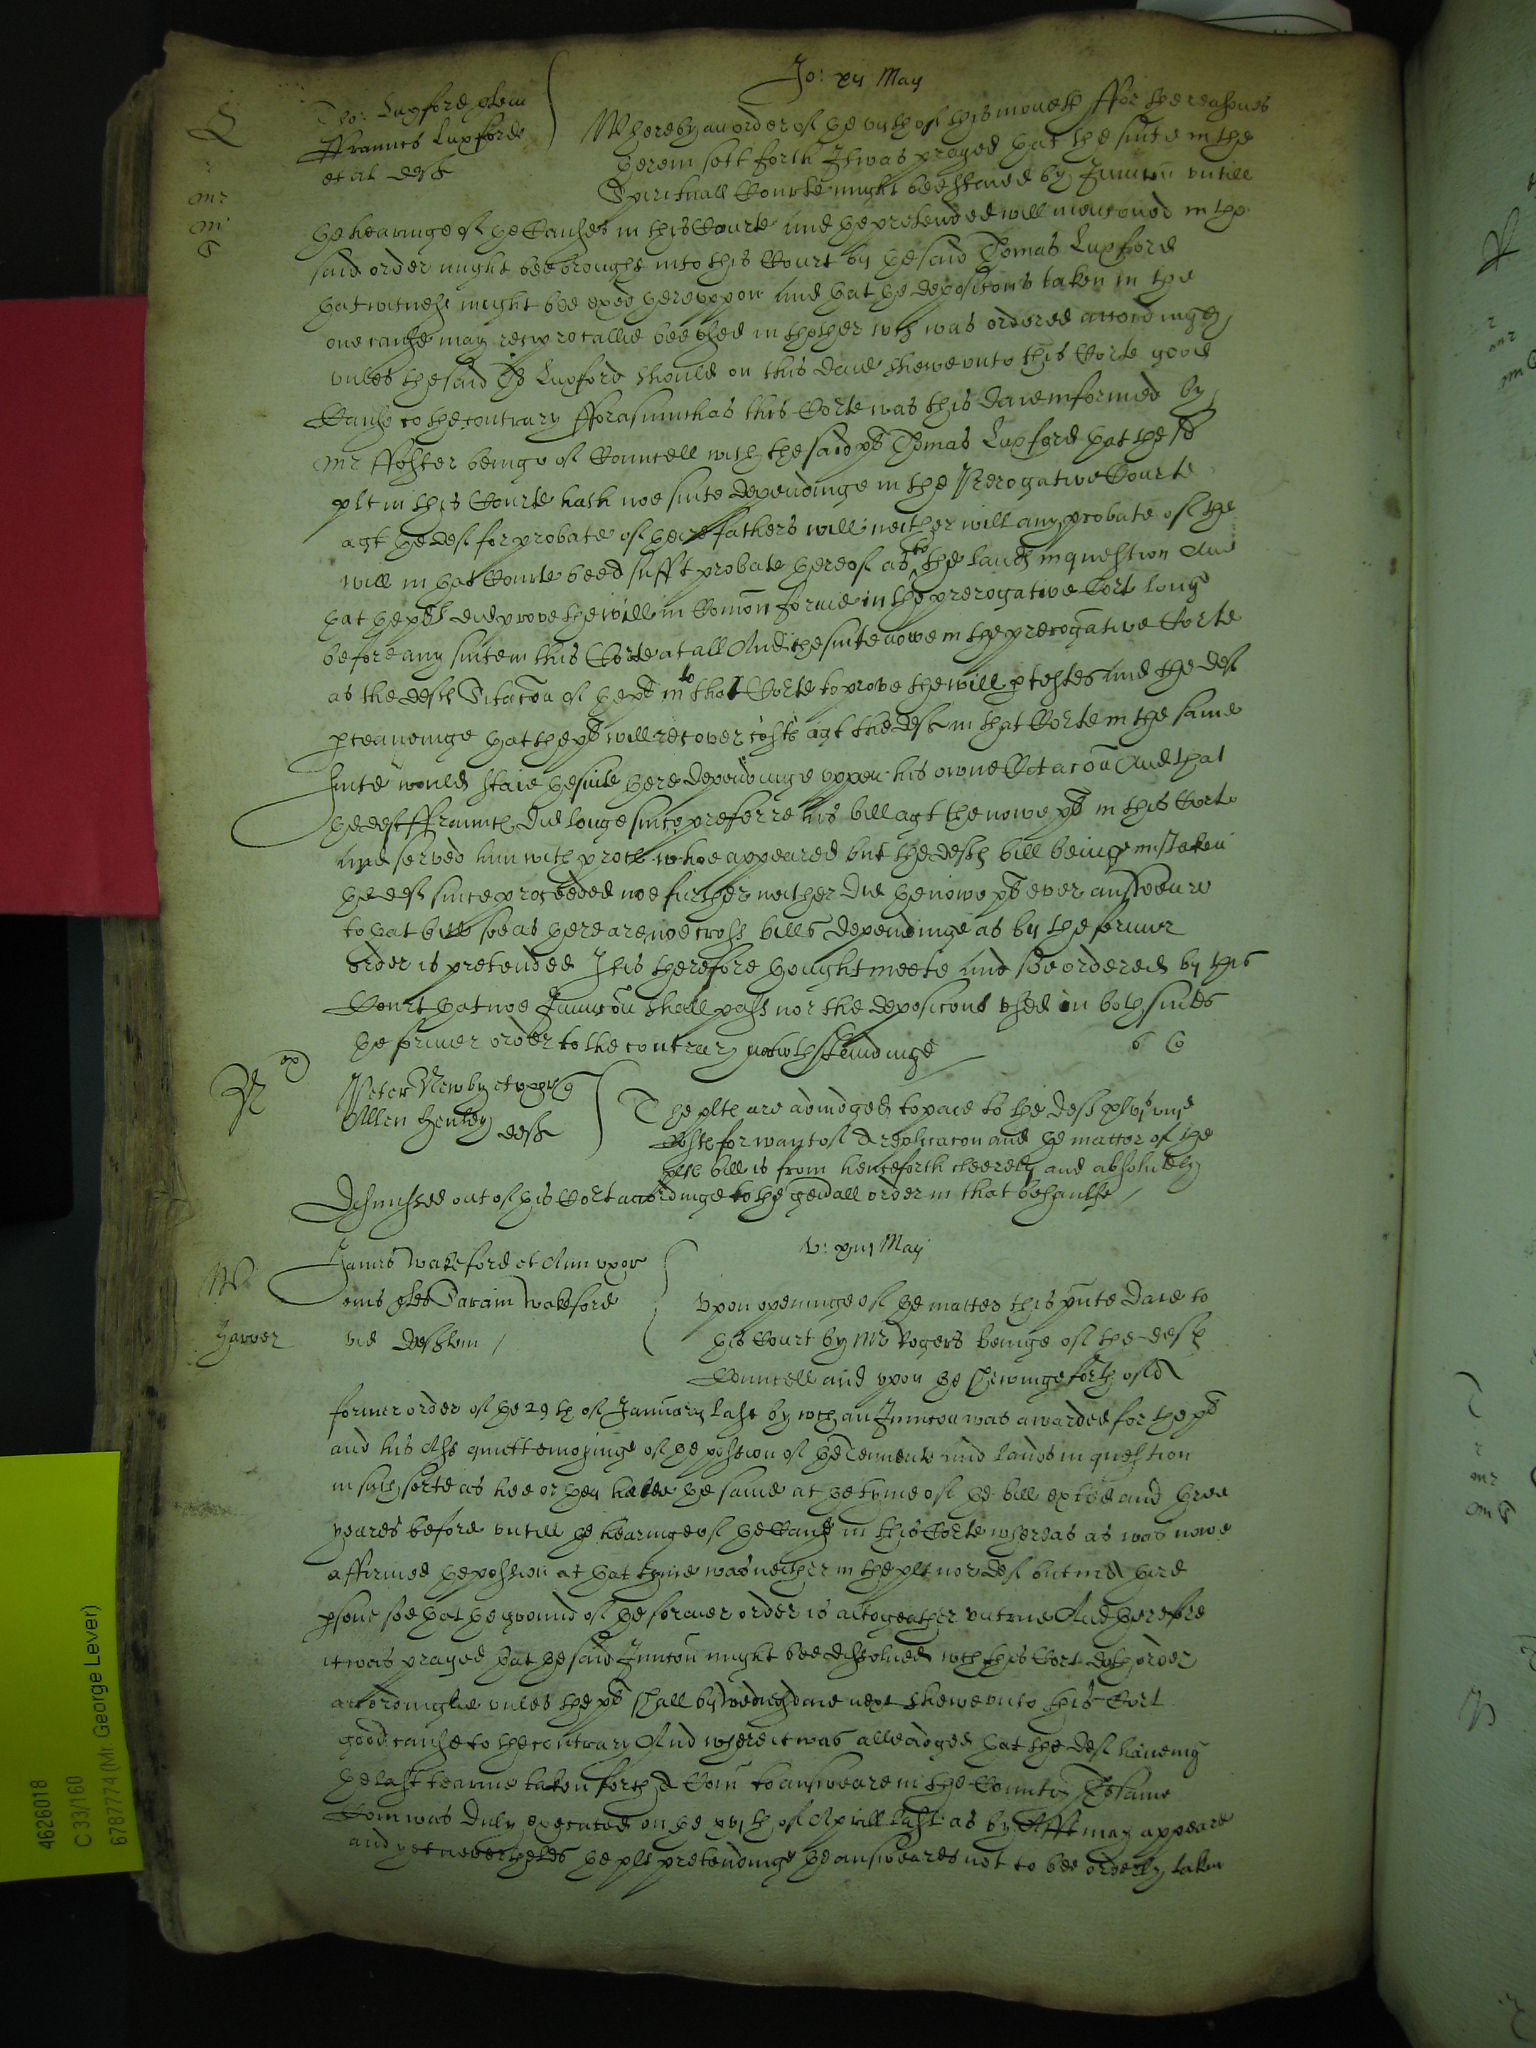 Jo: xij May
Tho: Luxford plem
ffraunces Luxforde
et al defts
Whereby an order of the vijth of this moneth ffor the reasons
therein sett forth It was prayed that the suite in the
Spirituall Courte might bee staied by Iniuncton untill
the hearinge of the Causes in this Courte and the pretended will mencioned in the
said order might bee brought into this Court by the said Thomas Luxford
that witnesses might bee exed thereuppon and that the deposicons taken in the
one cause may reciprocallie bee used in thother wch was ordered accordingly
unles the said Tho Luxford should on this daie shewe unto this Corte good
Cause to the contrary fforasmuch as this Corte was this daie informed by
Mr ffoster beinge of Councell with the said plt Thomas Luxford that the sd
plt in this Courte hath noe suite dependinge in the Prerogative Courte
agt the def for probate of there fathers will neither will any probate of the
will in that Courte beed sufft probate thereof as to the lands in question And
that the plt did prove the will in Comon forme in the prerogative Cort long
before any suite in this Corte at all And the suite nowe in the prerogative Corte
as the defts Citacon of the plt into that Corte to prove the will p testes and the def
pceaveinge that the plt will recover costs agt the deft in that Corte in the same
suite would staie the suite there dependinge uppon his owne Citacon And that
the def ffraunces did longe since preferre his bill agt the nowe plt in this Corte
and served him with proces whoe appeared but the defts bill being mistaken
the def since proceeded noe further neither did the nowe plt ever answeare
to that bill soe as there are noe cross bills dependinge as by the former
order is pretended It is therefore thought meete and soe ordered by this
Court that noe Iniuncton shall pass nor the deposicons used in both suites
the former order to the contrary notwthstandinge
Peter Newby et ux plts
Allen Henley deft
The plts are adiudged to paie to the deft
Costs for want of A replicacon and the matter of the
plts bill is from henceforth cleerely and absolutely
dismissed out of this Cort accordinge to the gen'all order in that behaulfe
V: xiij May
James Wakeford et Ann uxor
eius plts Sarain Wakeford
vid deftem
Harver
Upon openinge of the matter this p'nte daie to
this Court by Mr Rogers beinge of the defts
Councell and upon the shewinge forth of A
former order of the 29th of January last by wch an Iniuncton was awarded for the plt
and his Ass quiett enioyinge of the possession of the Tenements and lands in question
in such sorte as hee or they helde the same at the tyme of the bill exted and three
yeares before untill the hearinge of the Cause in this Corte whereas as was nowe
affirmed the possession at that tyme was neither in the plt nor def but in A third
psone soe that the ground of the former order is altogeather untrue And therefore
it was prayed that the said Iniuncton might bee dissolved wch this Cort doth order
accordinglie unles the plt shall by wednesdaie next shewe unto this Cort
good cause to the contrary And where it was alleadged that the def haveing
the last tearme taken forth A Com to answeare in the Countrey The same
Com was duly executed on the xvjth of Aprill last as by Afft may appeare
and yet nevertheles the plt pretendinge the answeares not to bee orderly taken
4626018
C 33/160
6787774 (Mr. George Lever)